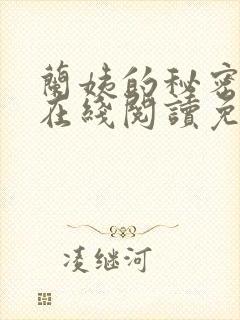 蘭姨的秘密
在綫閱讀免
凌继河